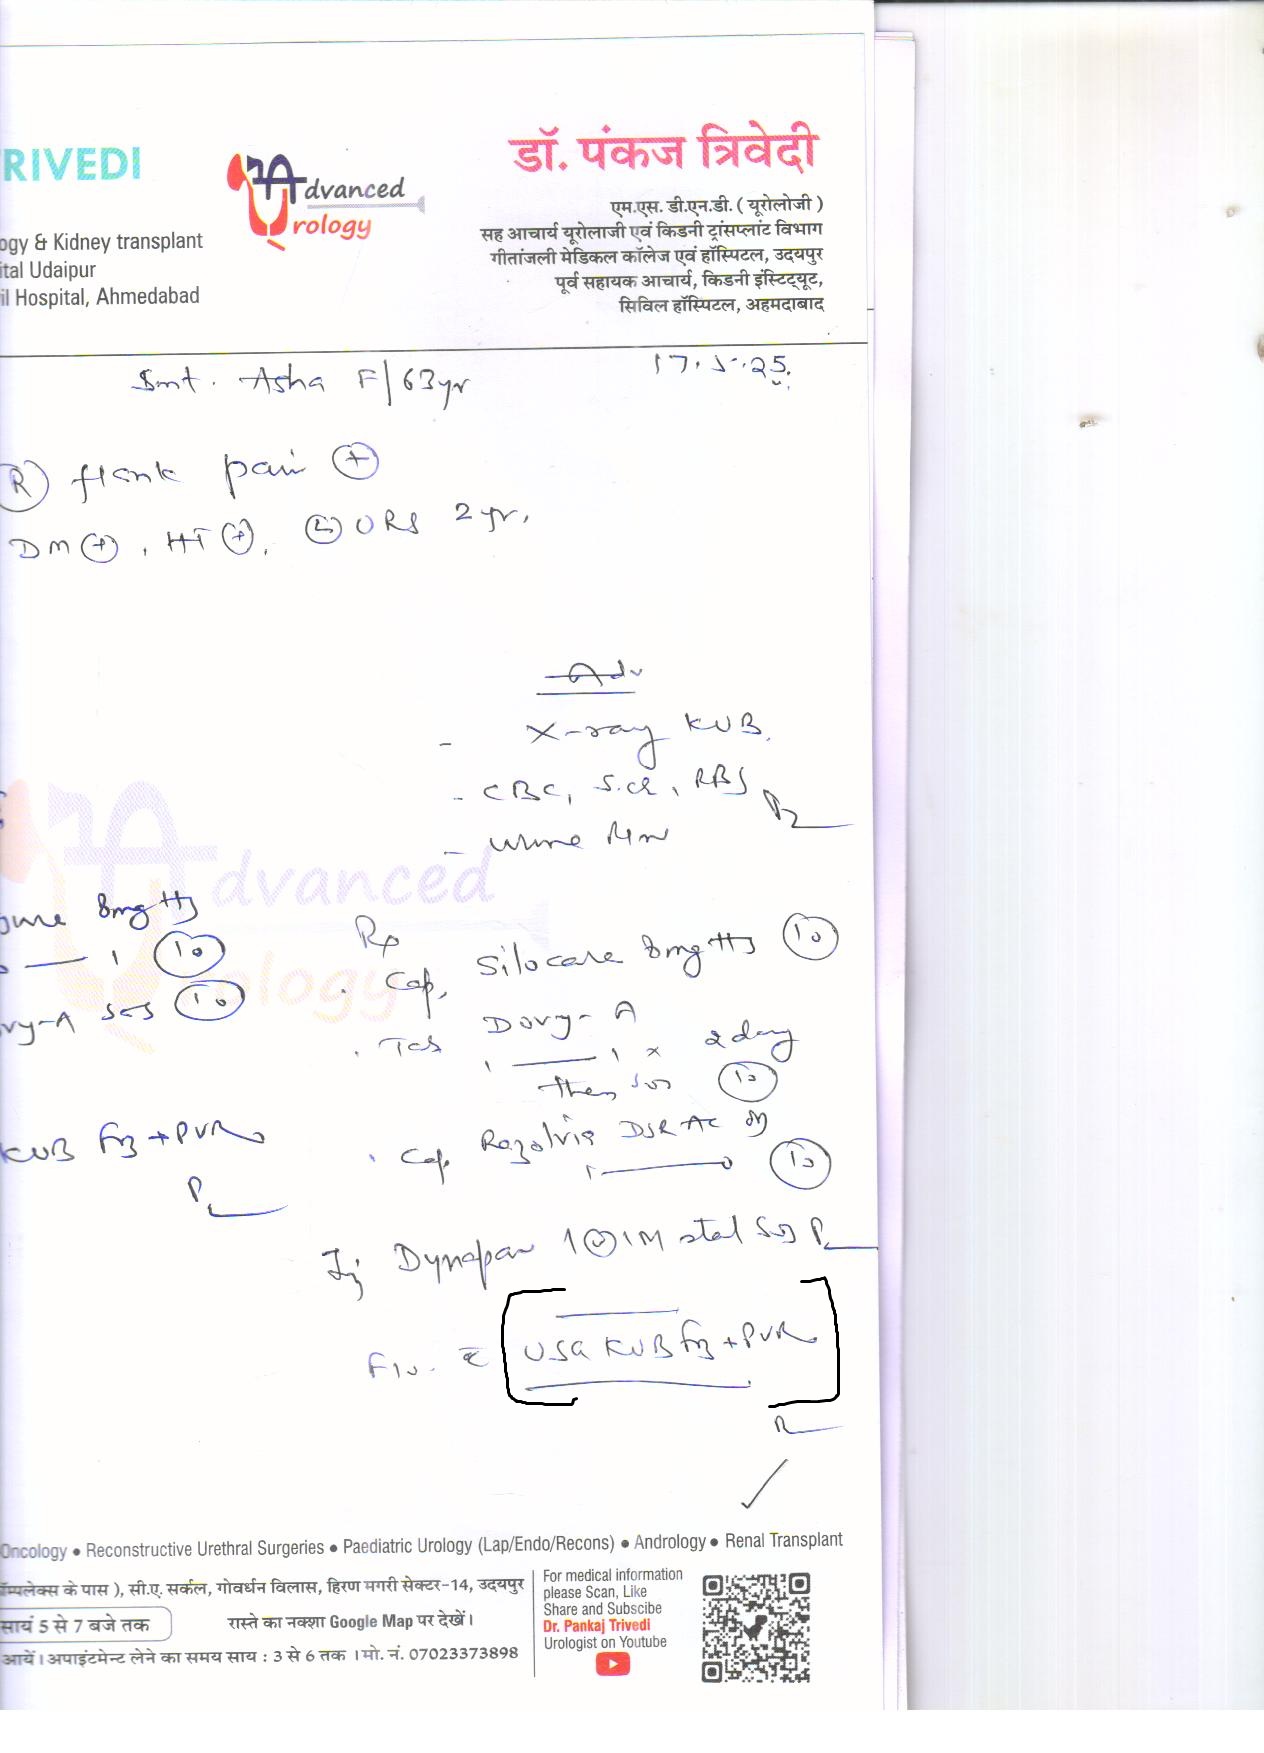 RIVEDI
Advanced
Urology
ogy & Kidney transplant
ital Udaipur
il Hospital, Ahmedabad
डॉ. पंकज त्रिवेदी
एम.एस. डी.एन.बी. ( यूरोलोजी )
सह आचार्य यूरोलाजी एवं किडनी ट्रांसप्लांट विभाग
गीतांजली मेडिकल कॉलेज एवं हॉस्पिटल, उदयपुर
पूर्व सहायक आचार्य, किडनी इंस्टिट्यूट,
सिविल हॉस्पिटल, अहमदाबाद
Smt. Asha F/63yr
17.5.25.
(R) flank pain (+)
DM (+), HT (+), (L) URS 2 yr,
Adv
- X-ray KUB.
- CBC, S.cr, RBS
- Urine R/M
8mg HS
1 (10)
vy-A SOS (10)
KUB + PVR
Rp
Cap, Silocare 8mg HS (10)
Tab Dovy-A
1 1 x 2 day
then SOS (10)
Cap. DSR AC
1 0 (10)
Inj Dynapar 1 IM stat
USG KUB + PVR
Oncology • Reconstructive Urethral Surgeries • Paediatric Urology (Lap/Endo/Recons) • Andrology • Renal Transplant
ॉम्पलेक्स के पास ), सी.ए. सर्कल, गोवर्धन विलास, हिरण मगरी सेक्टर-14, उदयपुर
सायं 5 से 7 बजे तक
रास्ते का नक्शा Google Map पर देखें।
आयें। अपाइंटमेन्ट लेने का समय साय : 3 से 6 तक । मो. नं. 07023373898
For medical information
please Scan, Like
Share and Subscibe
Dr. Pankaj Trivedi
Urologist on Youtube